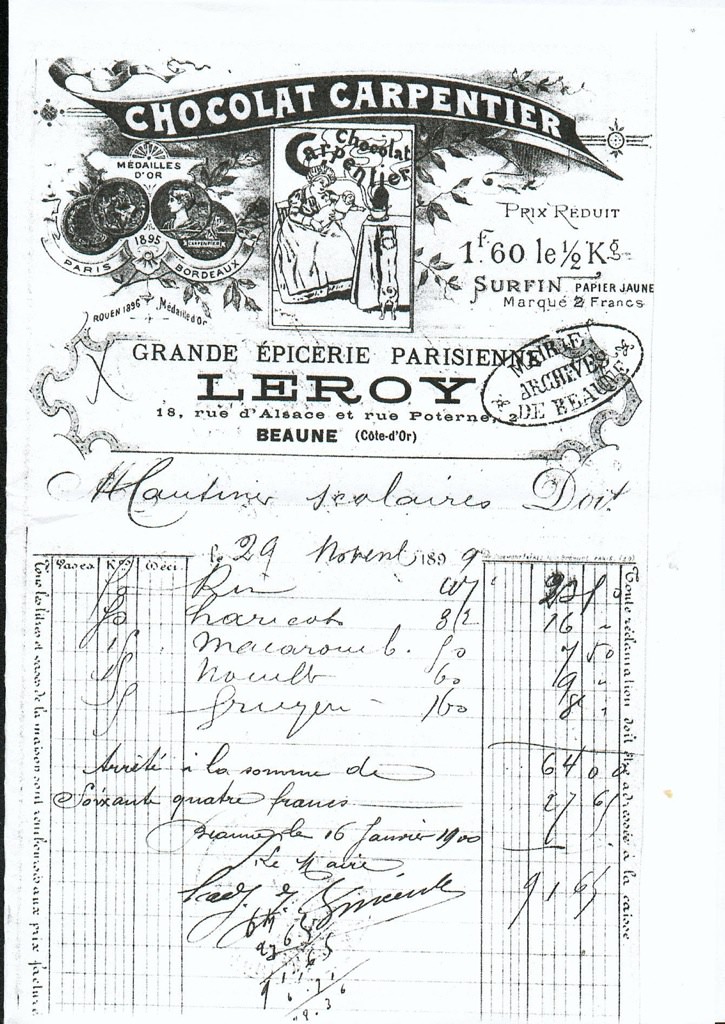 CHOCOLAT CARPENTIER
MÉDAILLES
D'OR
1895
PARIS
BORDEAUX
CARPENTIER
ROUEN 1896 Médaille d'Or
Chocolat
Carpentier
PRIX RÉDUIT
1F.60 le ½ Kg
SURFIN PAPIER JAUNE
Marqué 2 Francs
GRANDE ÉPICERIE PARISIENNE
LEROY
18, rue d'Alsace et rue Poterne, 2
BEAUNE (Côte-d'Or)
MAIRIE
ARCHIVES
DE BEAUNE
Cantines scolaires Doit
le 29 Novembre 1899
Vases Kos Déci
Riz
haricots 16 "
macaroni 50 7 50
Nouilles 60 9 "
gruyère 160 8 "
Arrêté à la somme de 64 00
Soixante quatre francs 27 65
Beaune le 16 Janvier 1900
Le Maire
91 65
64
27 65
91 65
Tous les fûts et vases de la maison sont remboursés aux prix facturés
Toute réclamation doit être adressée à la caisse